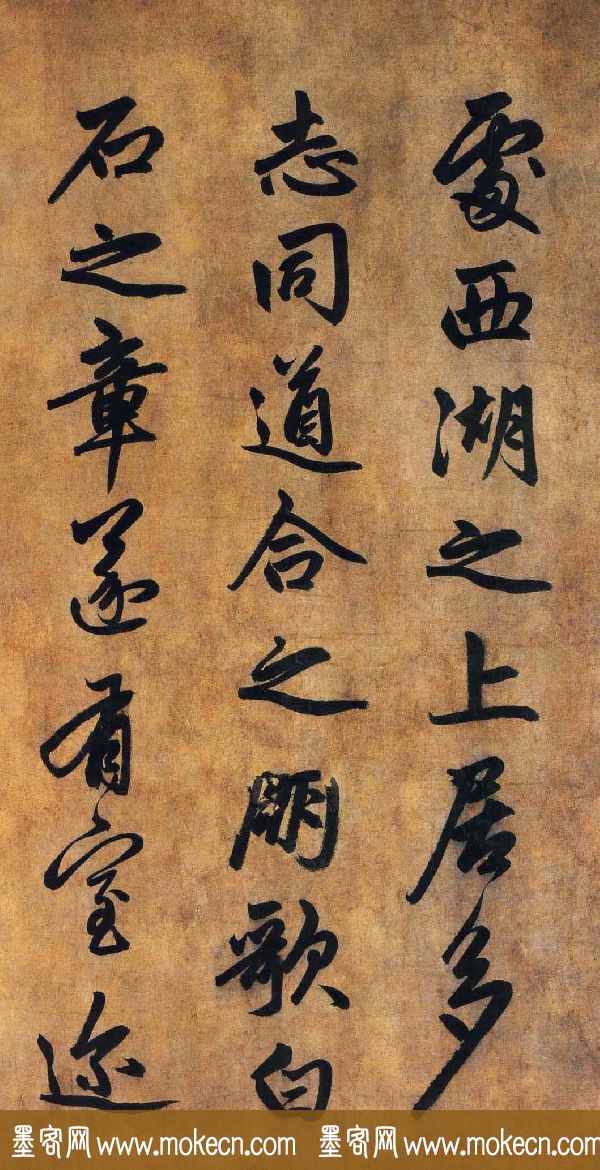 處西湖之上居多
志同道合之朋歌白
石之章遂有室迩
墨客网 www.mokecn.com 墨客网 www.mokecn.com